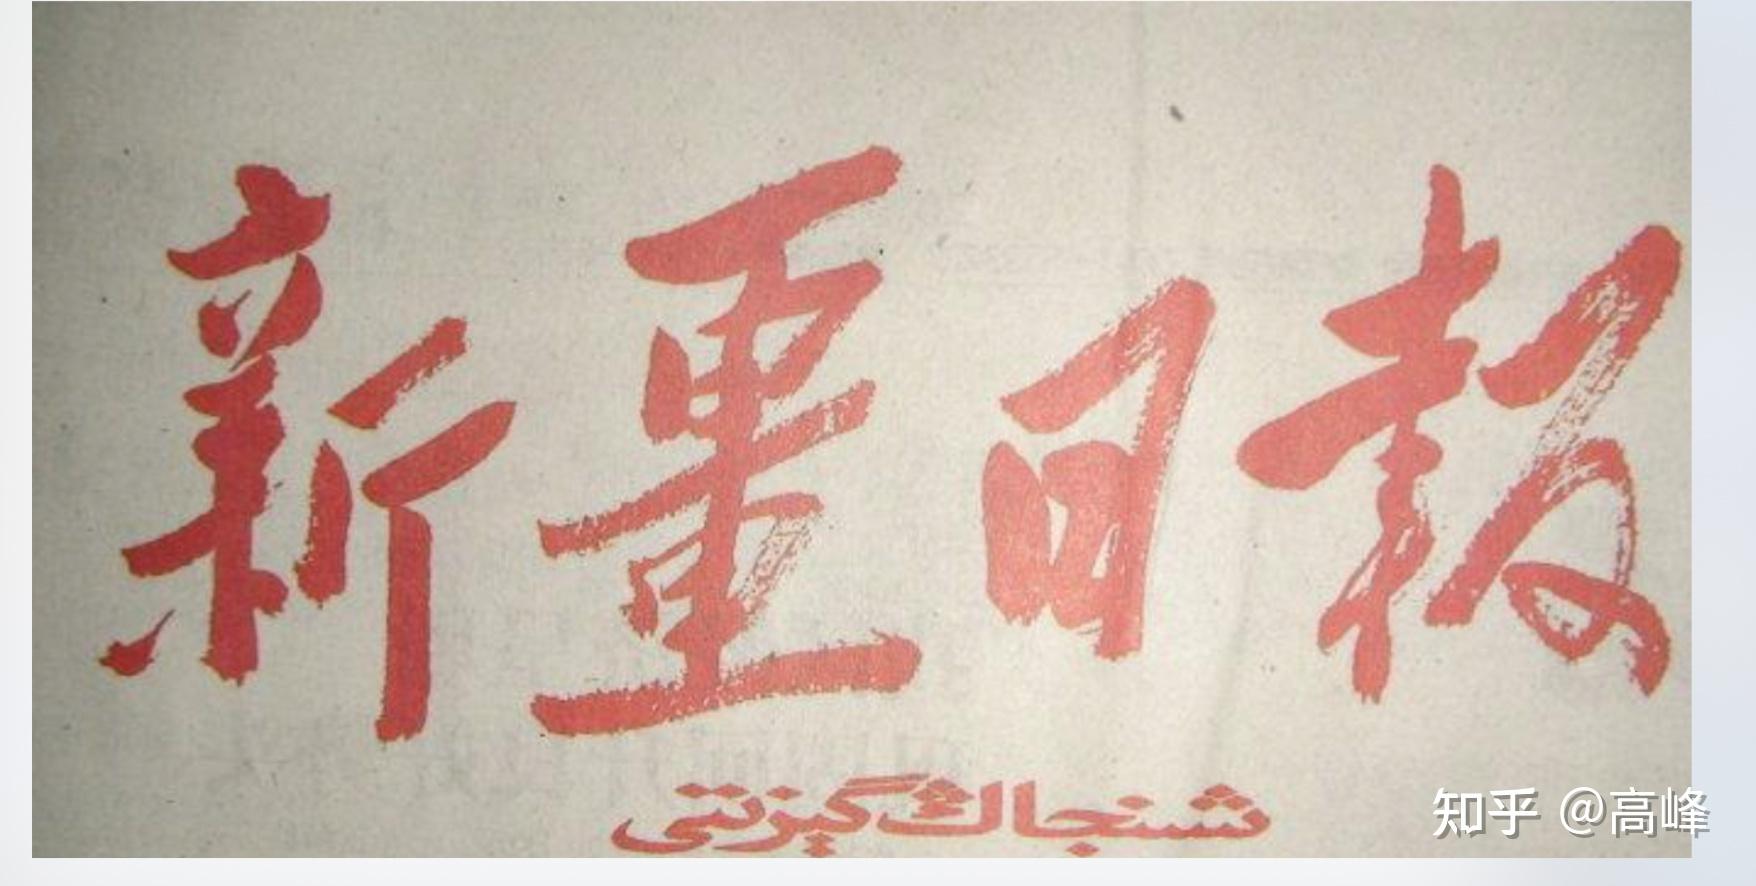 新畺日報
شىنجاڭ گېزىتى
知乎 @高峰